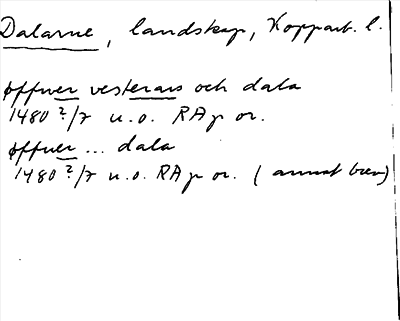 Dalarne, landskap, Kopparb. l.
øffuer vesterars och dala
1480 2/7 u.o. RAp or.
øffuer ... dala
1480 2/7 u.o. RAp or. (annat brev)